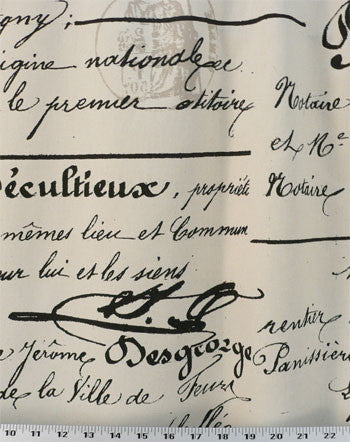 gny;
origine nationale
le premier
Décultieux, propriété
mêmes lieu et Commun
pour lui et les siens
Jérôme Desgeorge
de la Ville de Feurs
Notaire
et Me
Notaire
rentier
Panissière
1 2 3 4 5 6 7 8 9 10 11 12 13 14 15 16 17 18 19 20 21 22